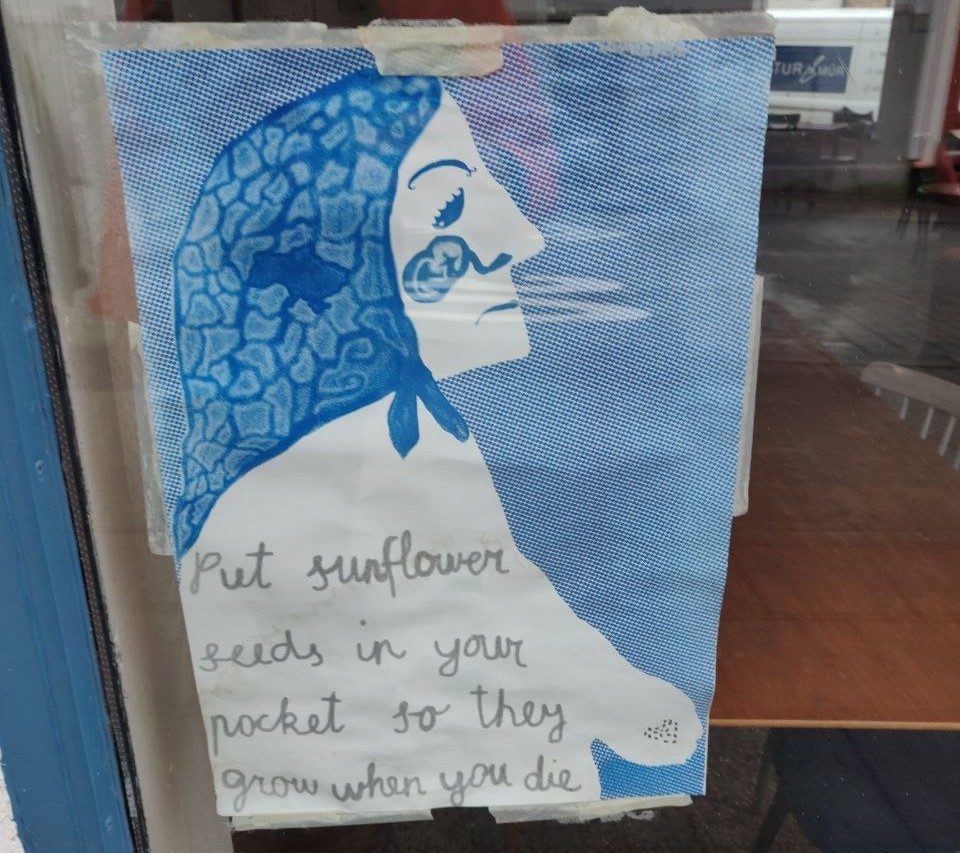 Put sunflower
seeds in your
pocket so they
grow when you die